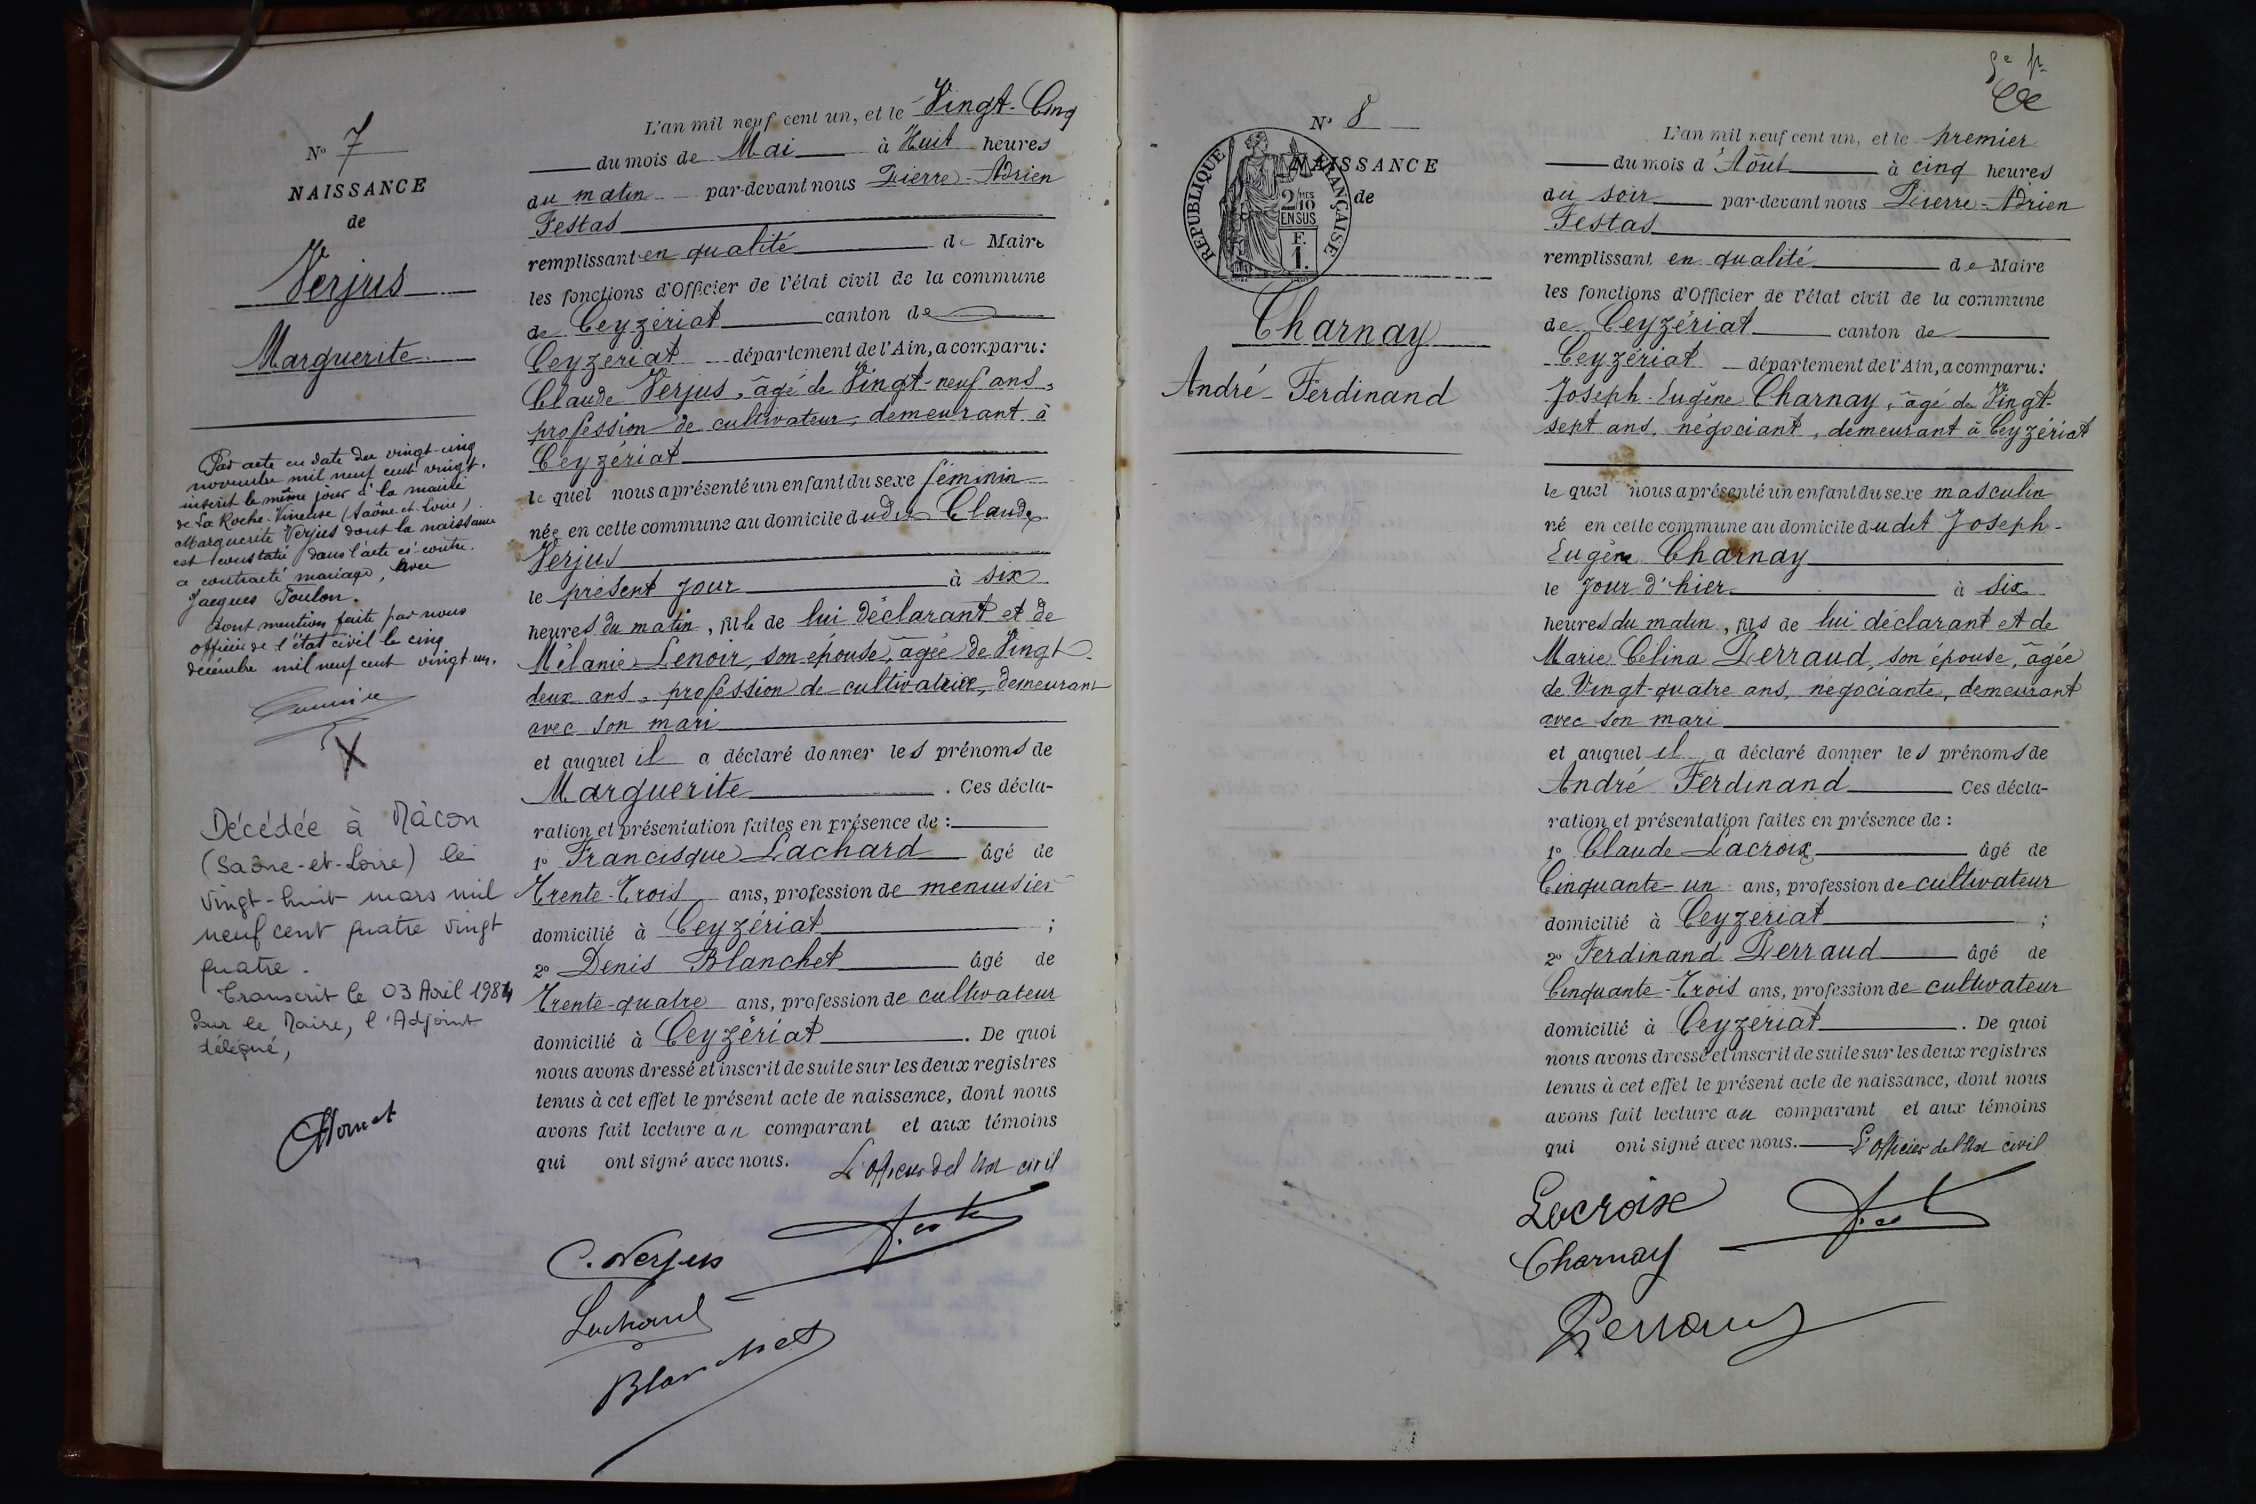 N° 7
NAISSANCE
de
Verjus
Marguerite
Par acte en date du vingt-cinq
novembre mil neuf cent vingt,
inscrit le même jour à la mairie
de La Roche-Vineuse (Saône-et-Loire)
Marguerite Verjus dont la naissance
est constatée dans l'acte ci-contre.
a contracté mariage, avec
Jacques Toulon.
Dont mention faite par nous
officier de l'état civil le cinq
décembre mil neuf cent vingt un.
X
Décédée à Mâcon
(Saône-et-Loire) le
vingt-huit mars mil
neuf cent quatre vingt
quatre.
Transcrit le 03 Avril 1984
Pour le Maire, l'Adjoint
délégué,
L'an mil neuf cent un, et le Vingt-Cinq
du mois de Mai à Huit heures
du matin par-devant nous Pierre-Adrien
Festas
remplissant en qualité de Maire
les fonctions d'Officier de l'état civil de la commune
de Ceyzériat canton de
Ceyzériat département de l'Ain, a comparu:
Claude Verjus, âgé de Vingt-neuf ans,
profession de cultivateur, demeurant à
Ceyzériat
le quel nous a présenté un enfant du sexe féminin
née en cette commune au domicile dudit Claude
Verjus
le présent jour à six
heures du matin, fille de lui déclarant et de
Mélanie Lenoir, son épouse, âgée de Vingt-
deux ans, profession de cultivatrice, demeurant
avec son mari
et auquel il a déclaré donner les prénoms de
Marguerite. Ces décla-
ration et présentation faites en présence de :
1° Francisque Lachard âgé de
Trente-Trois ans, profession de menuisier
domicilié à Ceyzériat ;
2° Denis Blanchet âgé de
Trente-quatre ans, profession de cultivateur
domicilié à Ceyzériat. De quoi
nous avons dressé et inscrit de suite sur les deux registres
tenus à cet effet le présent acte de naissance, dont nous
avons fait lecture au comparant et aux témoins
qui ont signé avec nous. L'officier de l'état civil
C. Verjus
Lachard
Blanchet
N° 8
NAISSANCE
de
RÉPUBLIQUE FRANÇAISE
2/10 MES
EN SUS
F.
1.
Charnay
André-Ferdinand
L'an mil neuf cent un, et le premier
du mois d'Août à cinq heures
du soir par-devant nous Pierre-Adrien
Festas
remplissant en qualité de Maire
les fonctions d'Officier de l'état civil de la commune
de Ceyzériat canton de
Ceyzériat département de l'Ain, a comparu:
Joseph-Eugène Charnay, âgé de Vingt-
sept ans, négociant, demeurant à Ceyzériat
le quel nous a présenté un enfant du sexe masculin
né en cette commune au domicile dudit Joseph-
Eugène Charnay
le jour d'hier à six
heures du matin, fils de lui déclarant et de
Marie Celina Perraud, son épouse, âgée
de Vingt-quatre ans, négociante, demeurant
avec son mari
et auquel il a déclaré donner les prénoms de
André Ferdinand Ces décla-
ration et présentation faites en présence de :
1° Claude Lacroix âgé de
Cinquante-un ans, profession de cultivateur
domicilié à Ceyzériat ;
2° Ferdinand Perraud âgé de
Cinquante-Trois ans, profession de cultivateur
domicilié à Ceyzériat. De quoi
nous avons dressé et inscrit de suite sur les deux registres
tenus à cet effet le présent acte de naissance, dont nous
avons fait lecture au comparant et aux témoins
qui ont signé avec nous. L'officier de l'état civil
Lacroix
Charnay
Perraud